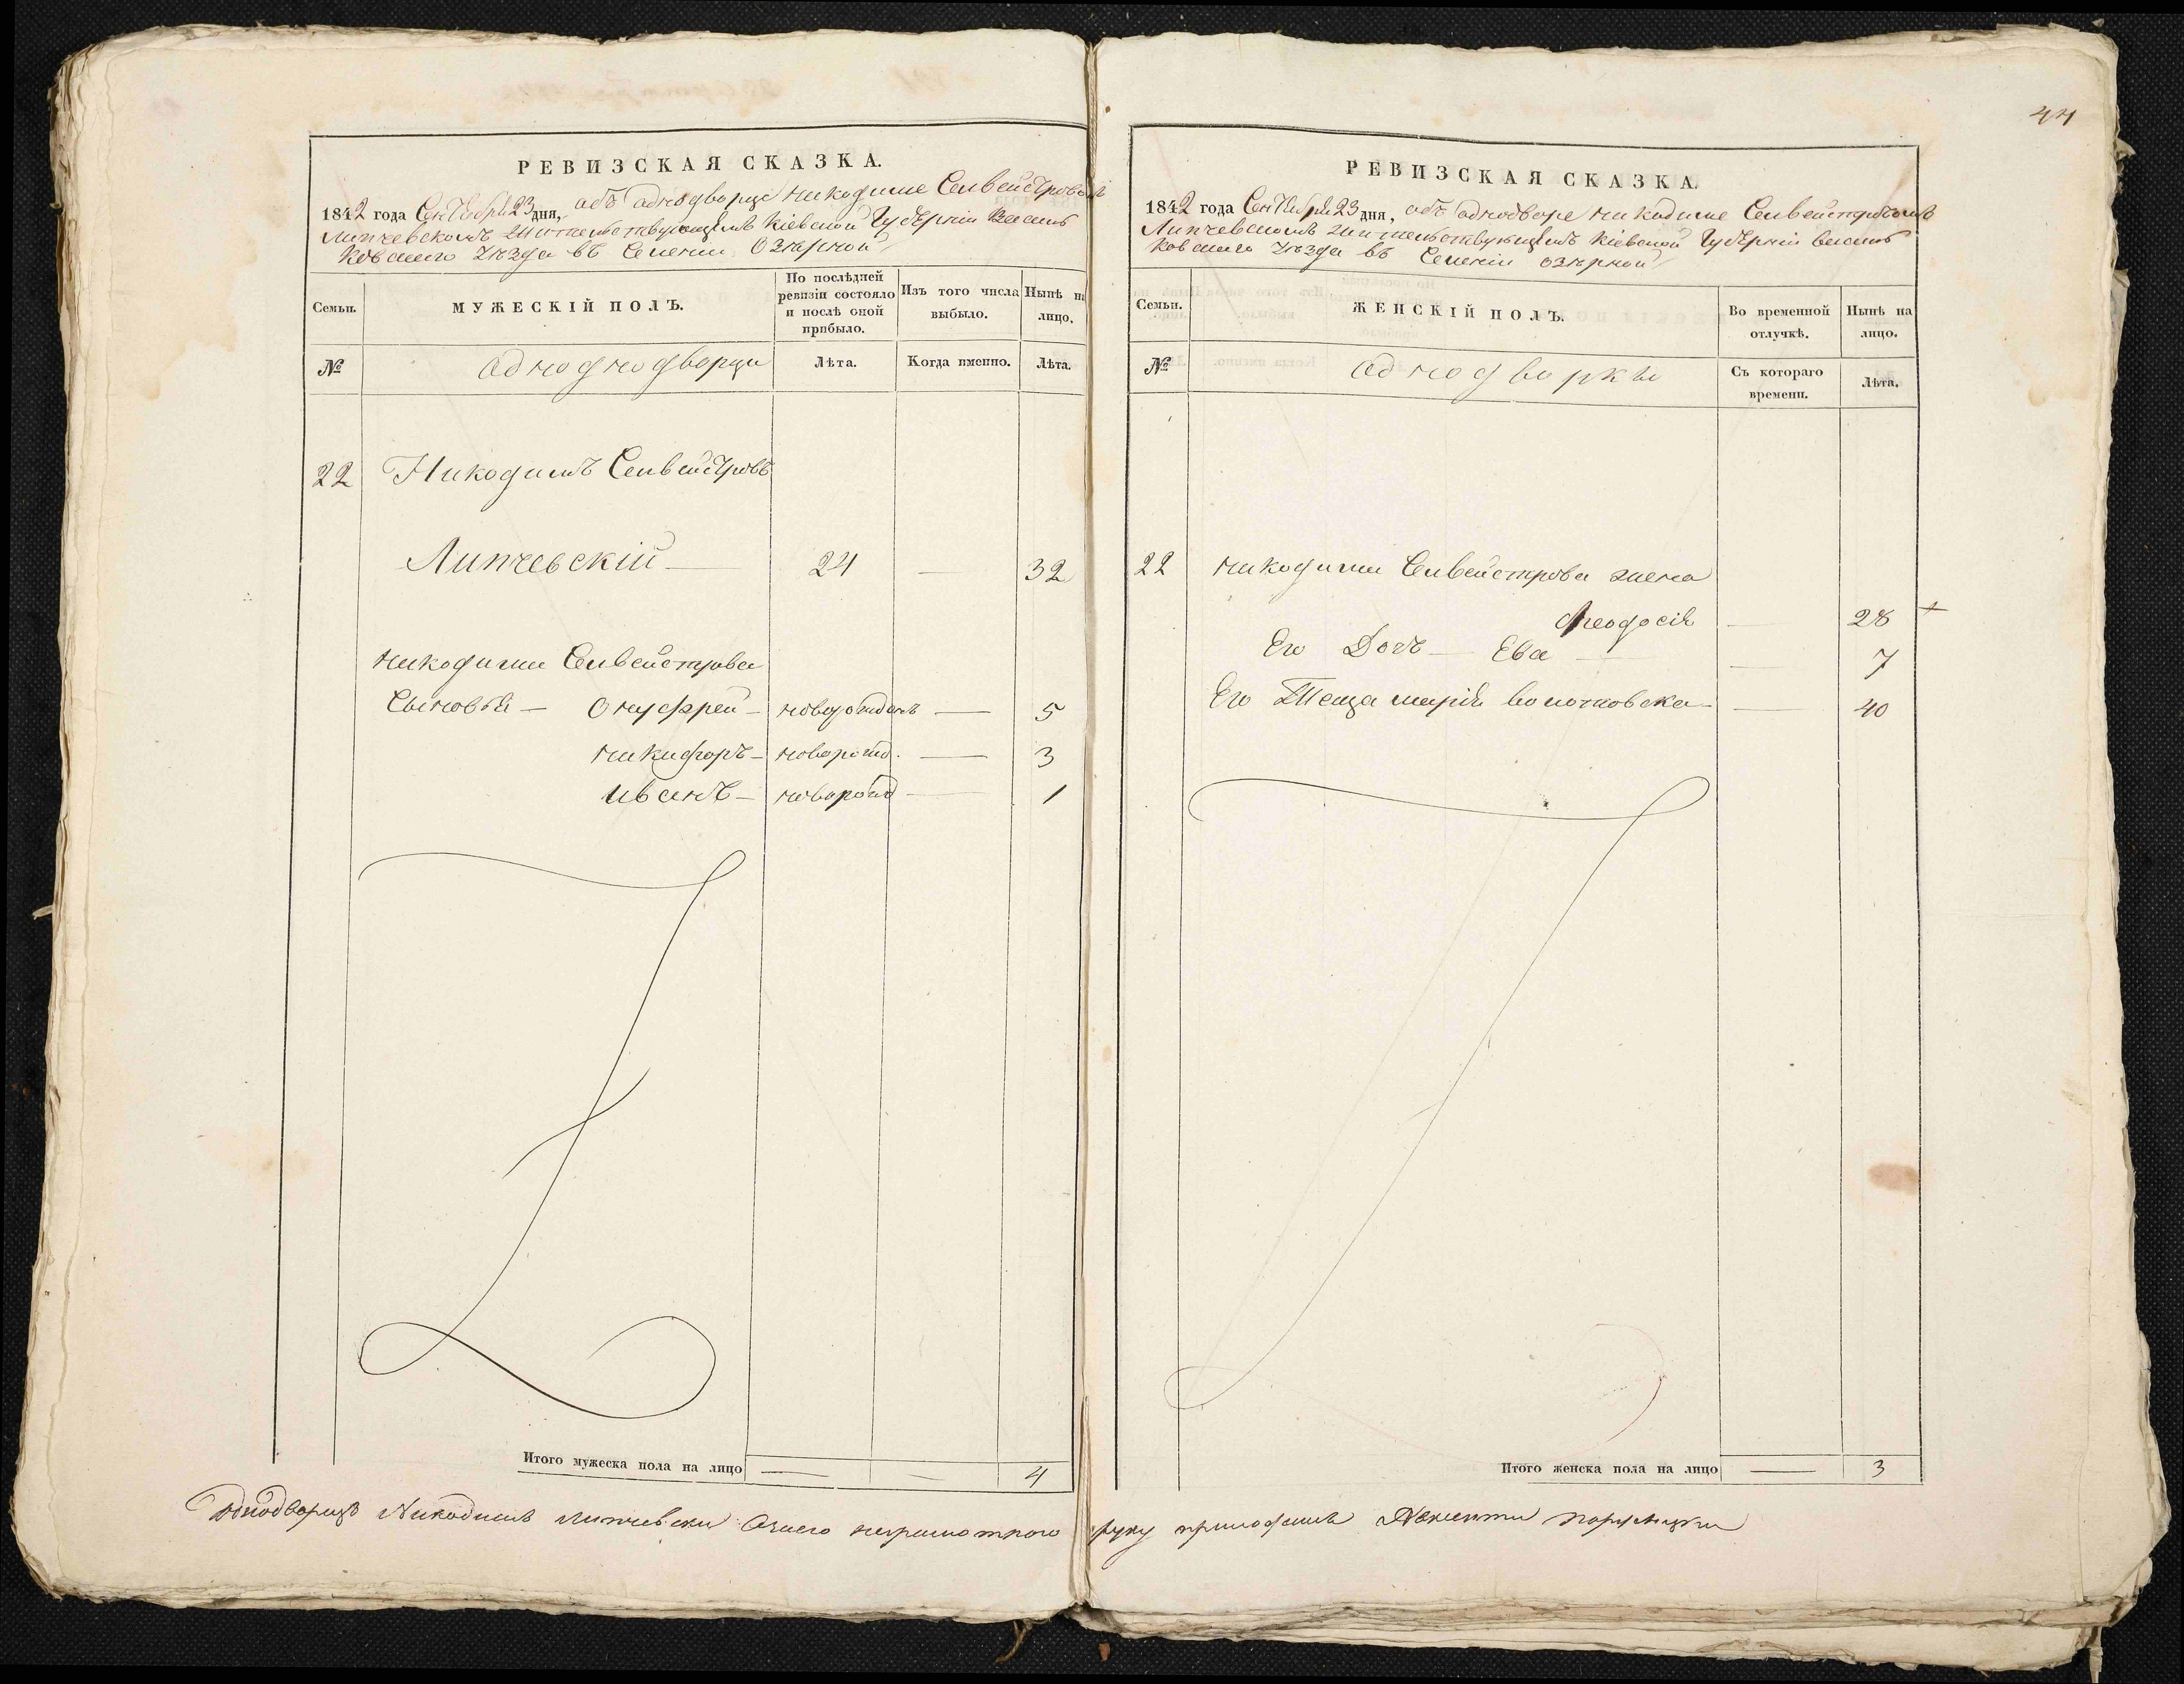 44
РЕВИЗСКАЯ СКАЗКА.
1842 года Сентября 23 дня, объ однодворце Никодиме Селвейстровомъ
Липчевскомъ жительствующемъ Кіевской Губерніи Василь
ковскаго Уезда въ Селеніи Озѣрной
Семьи. МУЖЕСКІЙ ПОЛЪ. По послѣдней ревизіи состояло и послѣ оной прибыло. Изъ того числа выбыло. Нынѣ на лицо.
№ Однодворци Лѣта. Когда именно. Лѣта.
22 Никодимъ Селвейстровъ
Липчевскій — 24 — 32
Никодима Селвейстрова
Сыновья — Онуфрей — новорожденъ — 5
никифоръ — новорожд. — 3
иванъ — новорожд — 1
Итого мужеска пола на лицо — — 4
Однодворецъ Никодимъ Липчевски а за его неграмотного
РЕВИЗСКАЯ СКАЗКА.
1842 года Сентября 23 дня, объ однодворе Никодиме Селвейстровомъ
Липчевскомъ жительствующемъ Кіевской Губерніи Василь
ковскаго Уѣзда въ Селеніи Озѣрной
Семьи. ЖЕНСКІЙ ПОЛЪ. Во временной отлучкѣ. Нынѣ на лицо.
№ Однодворки Съ котораго времени. Лѣта.
22 Никодима Селвейстрова жена
Феодосія — 28 +
Его Дочъ — Ева — — 7
Его Теща марія — 40
Итого женска пола на лицо — 3
руку приложилъ